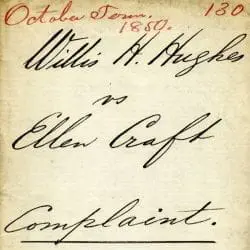 October Term, 130
1850.
Willis H. Hughes
vs
Ellen Craft
Complaint.